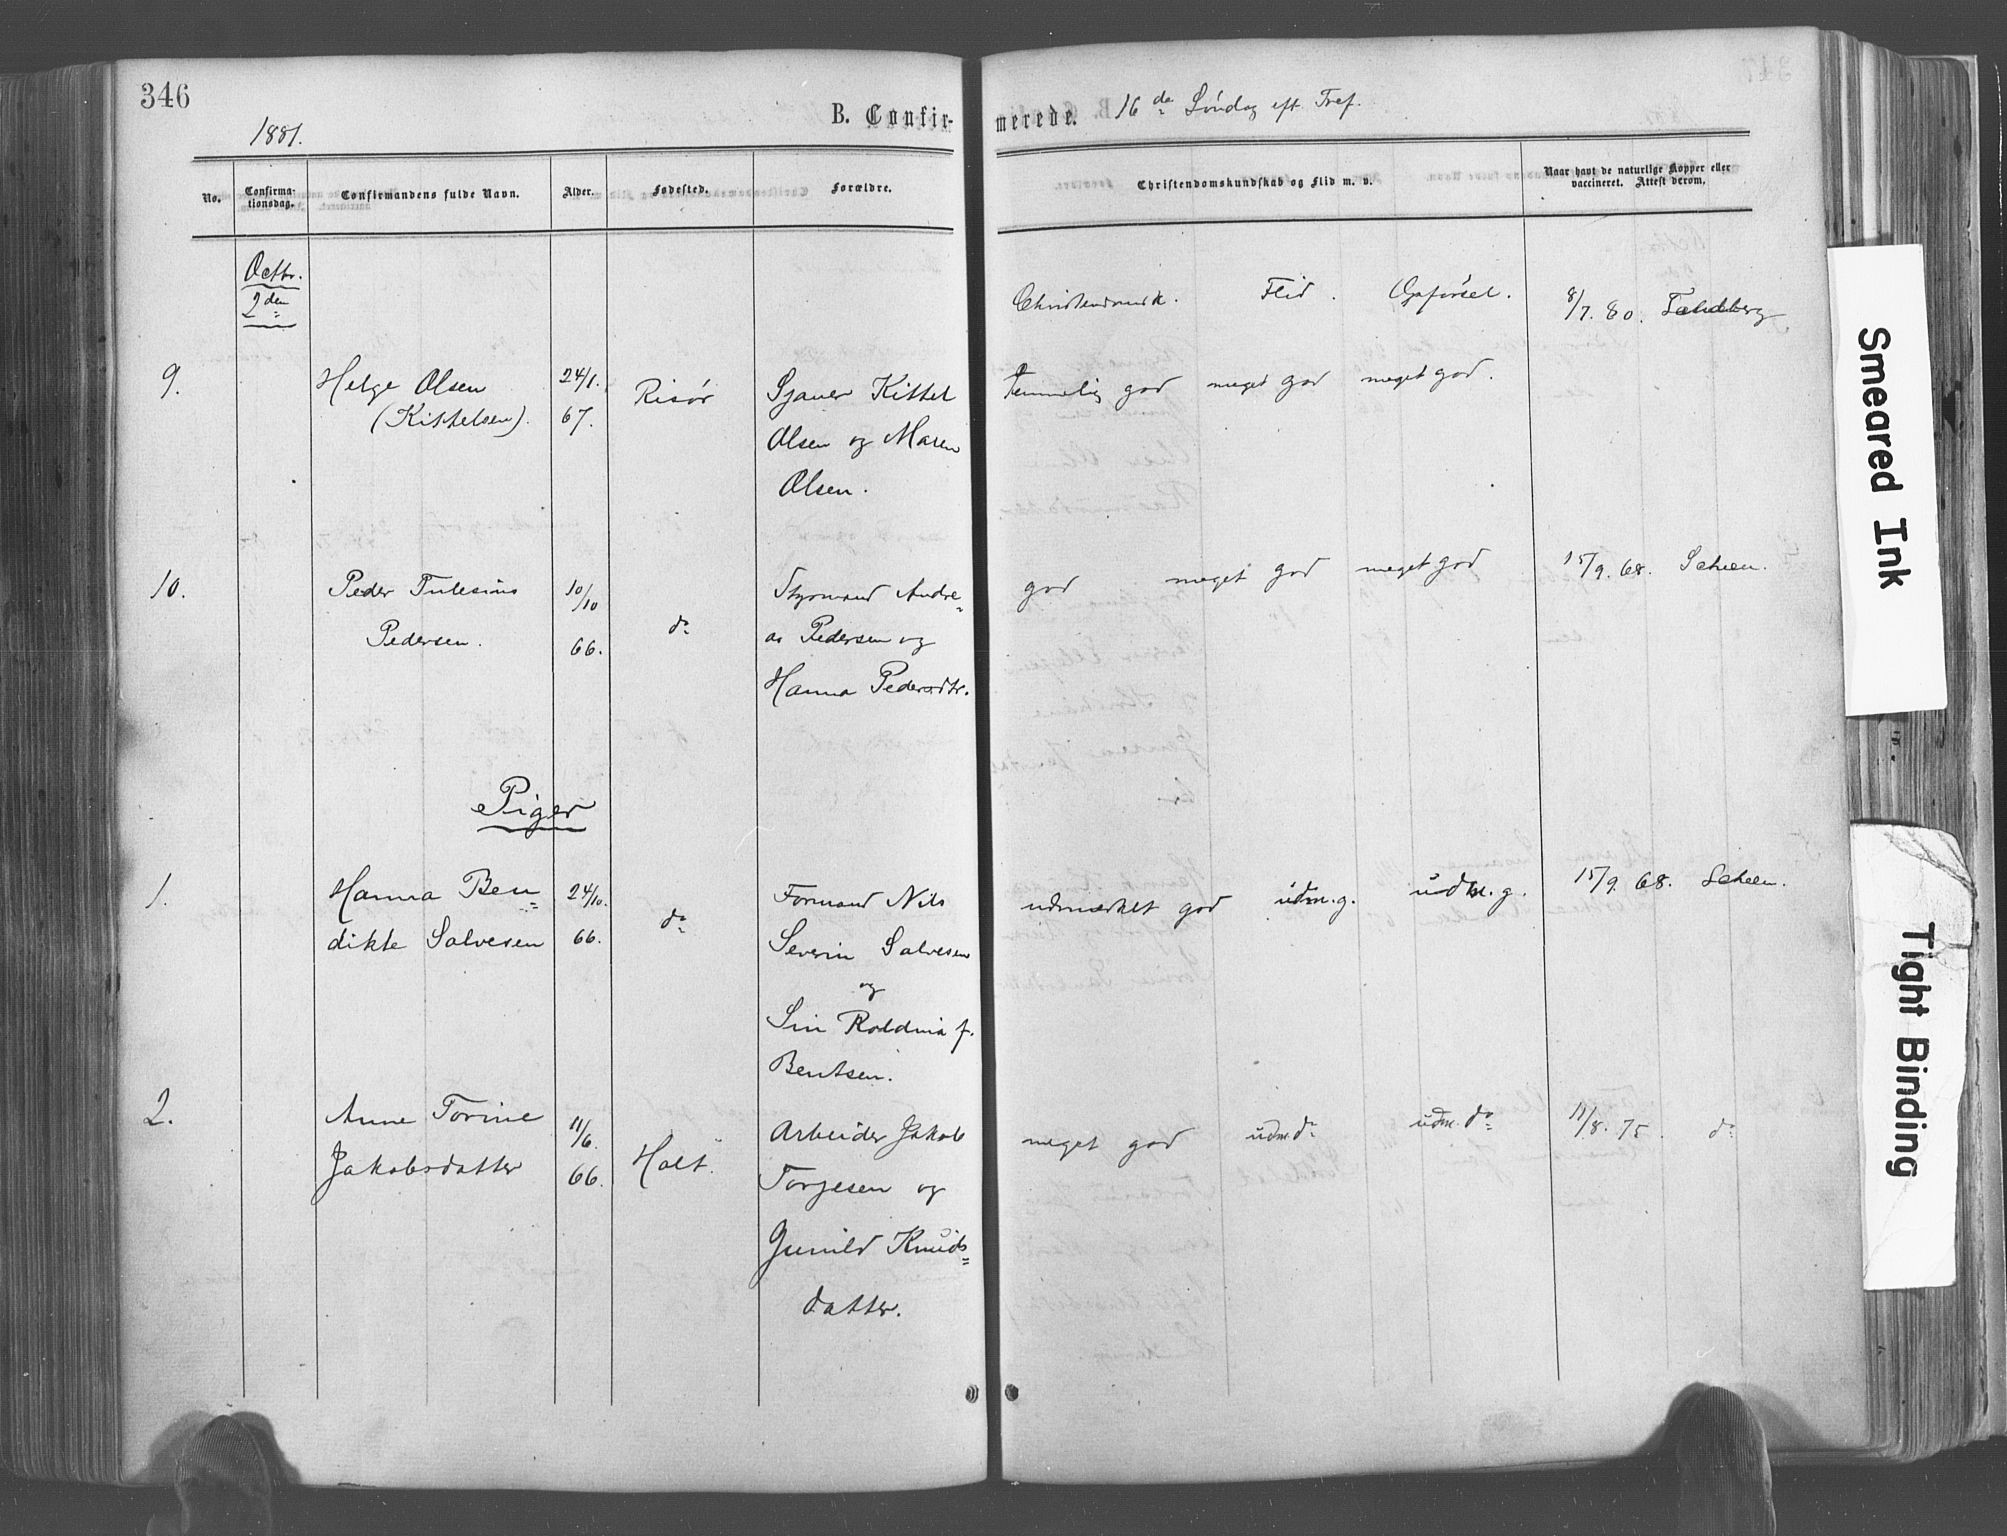 346
1881.
B. Confir-
merede. 16 de Søndag eft Tref.
No.
Confirma-
tionsdag.
Confirmandens fulde Navn.
Alder.
Fødested.
Forældre.
Christendomskundskab og Flid m. v.
Naar havt de naturlige Kopper eller
vaccineret. Attest derom.
Octbr.
2den
Christendomsk. Flid. Opførsel. 8/7. 80. Tandberg
9. Helge Olsen 24/1. Risør Sjauer Kittel Temmelig god meget god meget god.
(Kittelsen). 67. Olsen og Maren
Olsen.
10. Peder Tulesius 10/10 do Styrmand Andre= god meget god meget god 15/9. 68. Scheen.
Pedersen. 66. as Pedersen og
Hanna Pedersdtr.
Piger
1. Hanna Ben= 24/10. do Formand Nils udmærket god udm. g. udm. g. 15/9. 68. Scheen.
dikte Salvesen 66. Severin Salvesen
og
Sin Roldina f.
Bentsen.
2. Anne Torine 11/6. Holt. Arbeider Jakob meget god udm. do udm. do 11/8. 75. do
Jakobsdatter 66. Torjesen og
Gunild Knuds=
datter.
Smeared Ink
Tight Binding